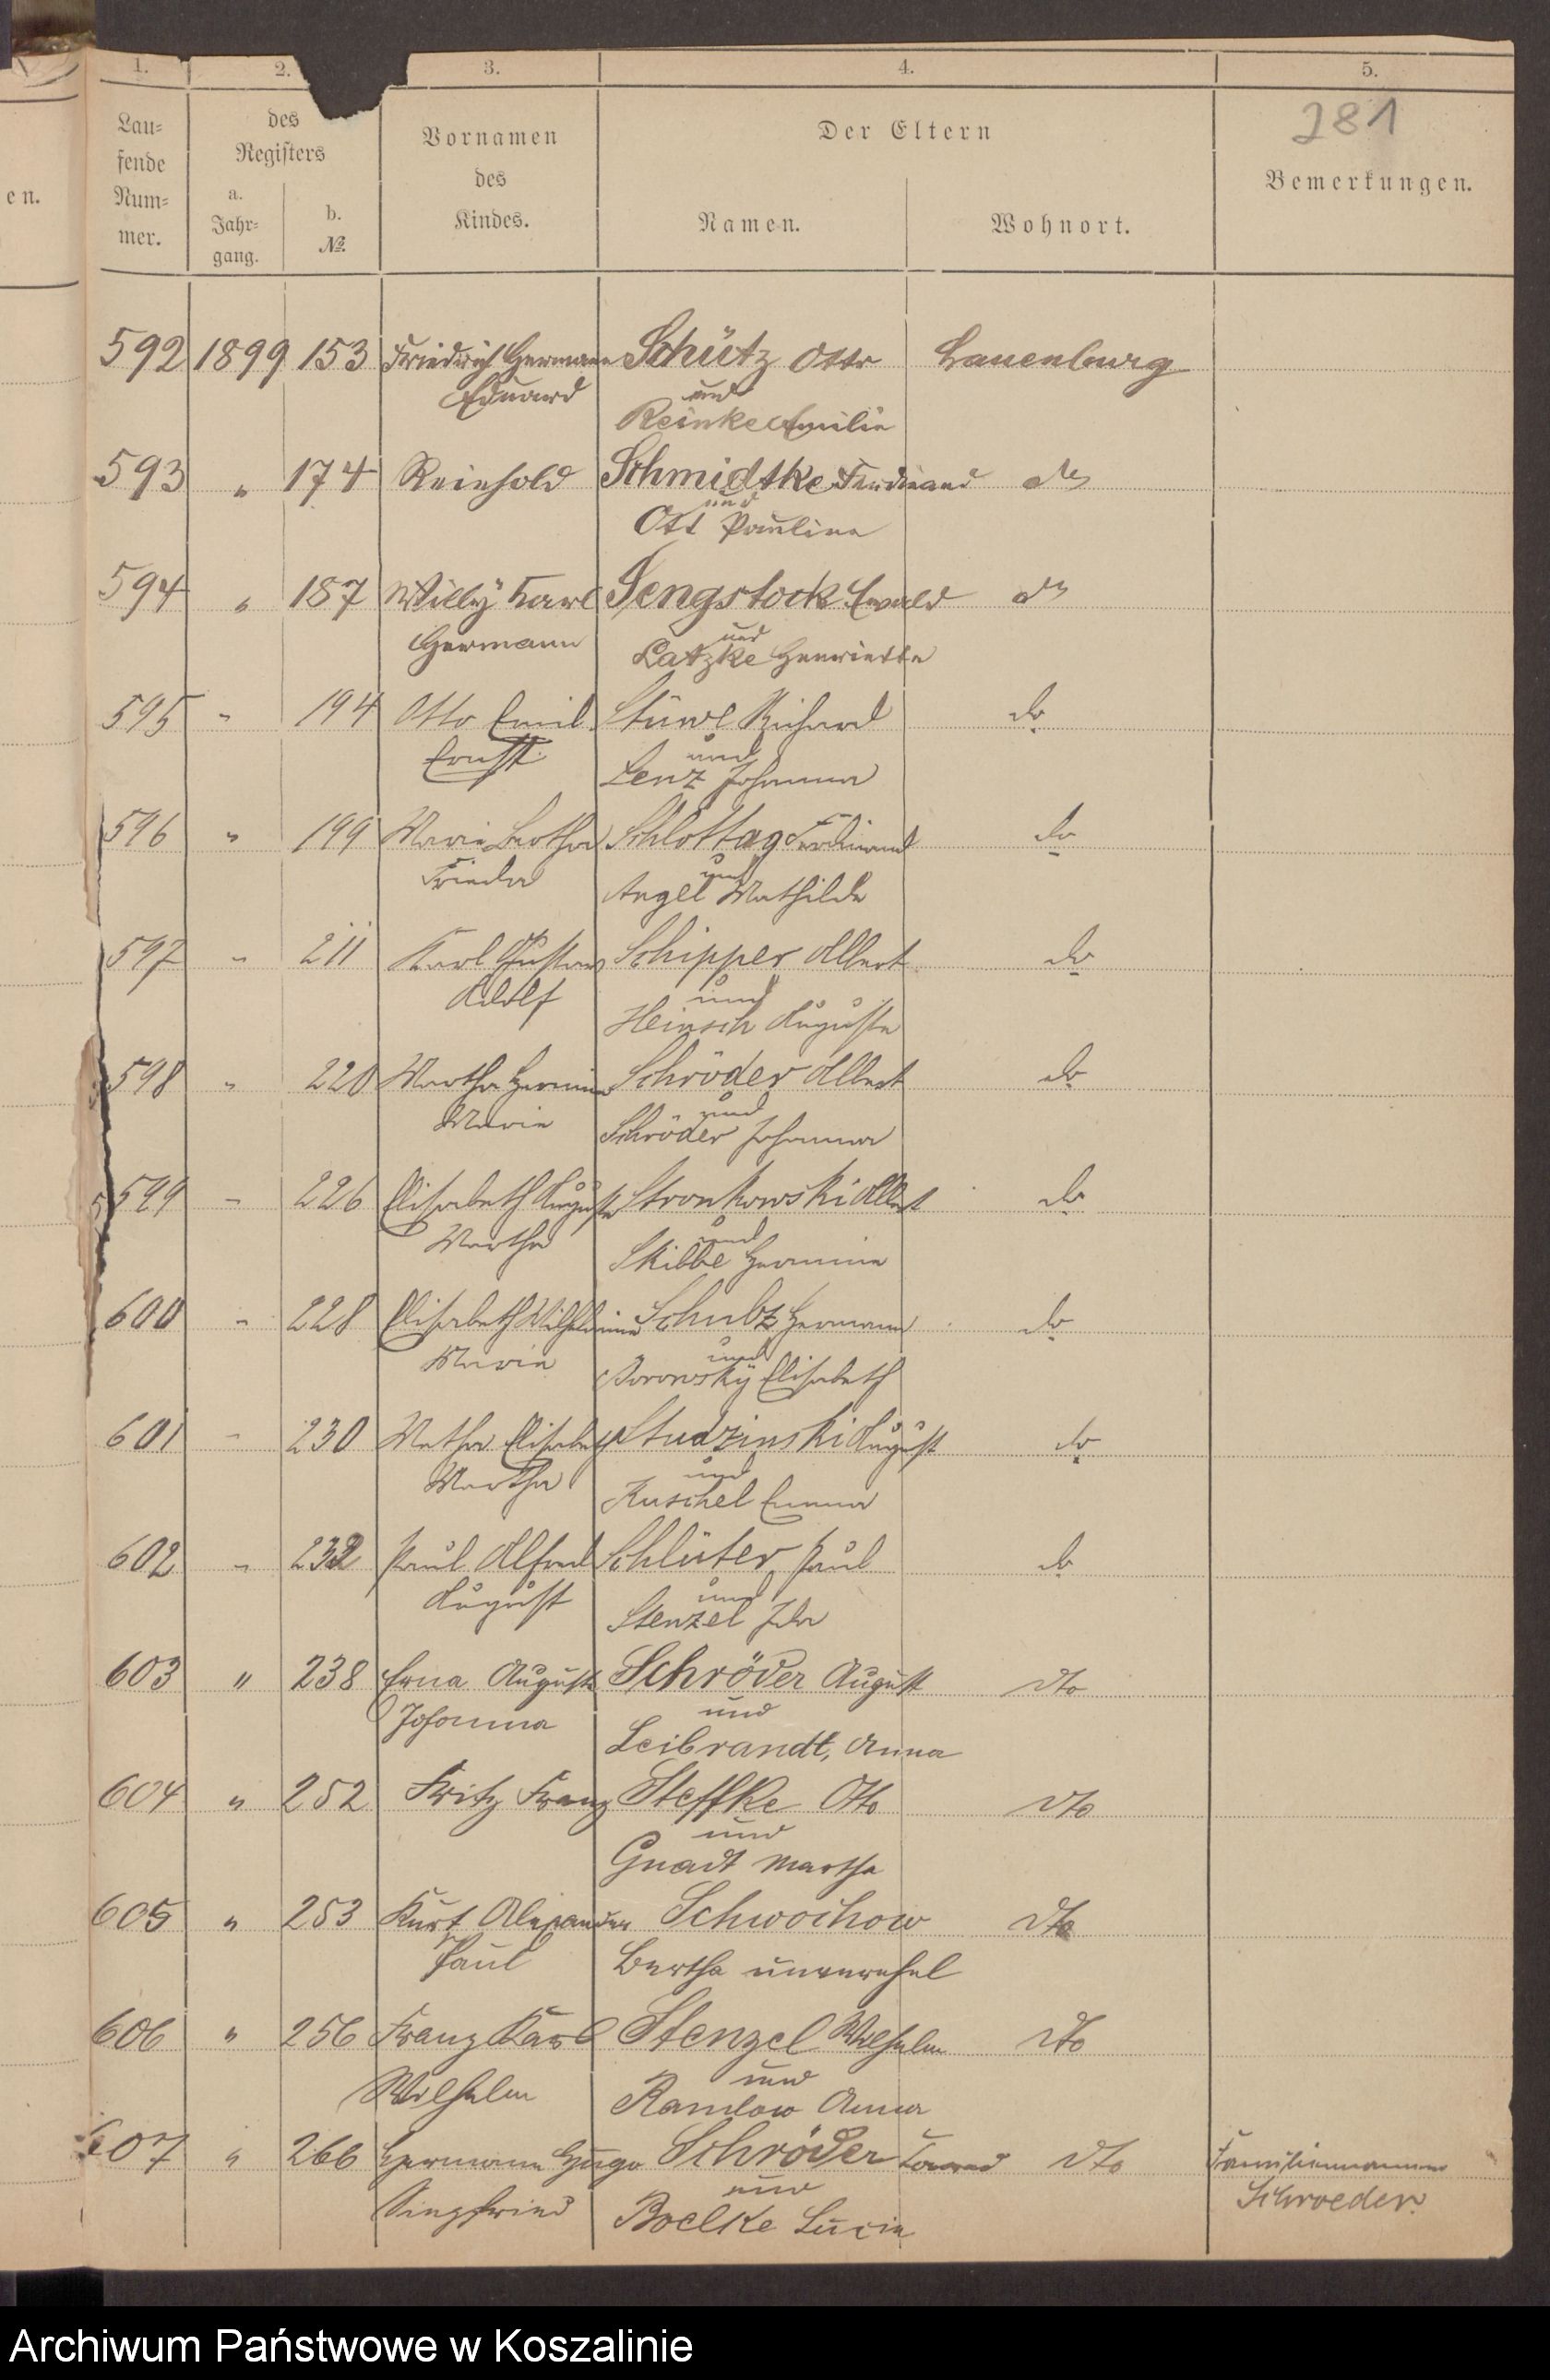 1. 2. 3. 4. 5.
281
Lau=
fende
Num=
mer.
des
Registers
a.
Jahr=
gang.
b.
№.
Vornamen
des
Kindes.
Der Eltern
Namen. Wohnort.
Bemerkungen.
en.
592 1899 153 Friedrich Hermann Schütz Otto Lauenburg
Eduard und
Reinke Emilie
593 " 174 Reinhold Schmidtke Ferdinand do
und
Ott Pauline
594 " 187 Willy Karl Sengstock Ewald do
Hermann und
Latzke Henriette
595 " 194 Otto Emil Stüwe Richard do
Ernst und
Lenz Johanna
596 " 199 Marie Bertha Schlottag Ferdinand do
Frieda und
Angel Mathilde
597 " 211 Karl Gustav Schipper Albert do
Adolf und
Heinsch Auguste
598 " 220 Martha Hermine Schröder Albert do
Marie und
Schröder Johanna
599 " 226 Elisabeth Auguste Stronkowski Albert do
Martha und
Skibbe Hermine
600 " 228 Elisabeth Wilhelmine Schulz Hermann do
Marie und
Borowsky Elisabeth
601 " 230 Elisabeth Studzinski August do
Martha und
Kuschel Emma
602 " 232 Paul Alfred Schlüter Paul do
August und
Stenzel Ida
603 " 238 Erna Auguste Schröder August dto
Johanna und
Leibrandt, Anna
604 " 252 Fritz Franz Steffke Otto dto
und
Gnadt Martha
605 " 253 Kurt Alexander Schwochow dto
Paul Bertha unverehel
606 " 256 Franz Karl Stenzel Wilhelm dto
Wilhelm und
Ramlow Anna
607 " 266 Hermann Hugo Schröder dto Familiennamen
Siegfried und Schroeder.
Boelke Lucie
Archiwum Państwowe w Koszalinie